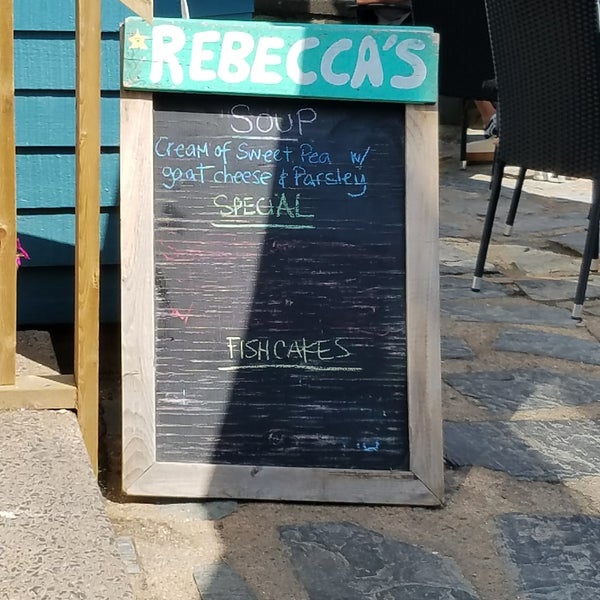 REBECCA'S
SOUP
Cream of Sweet Pea w/
goat cheese & Parsley
SPECIAL
w/
FISHCAKES